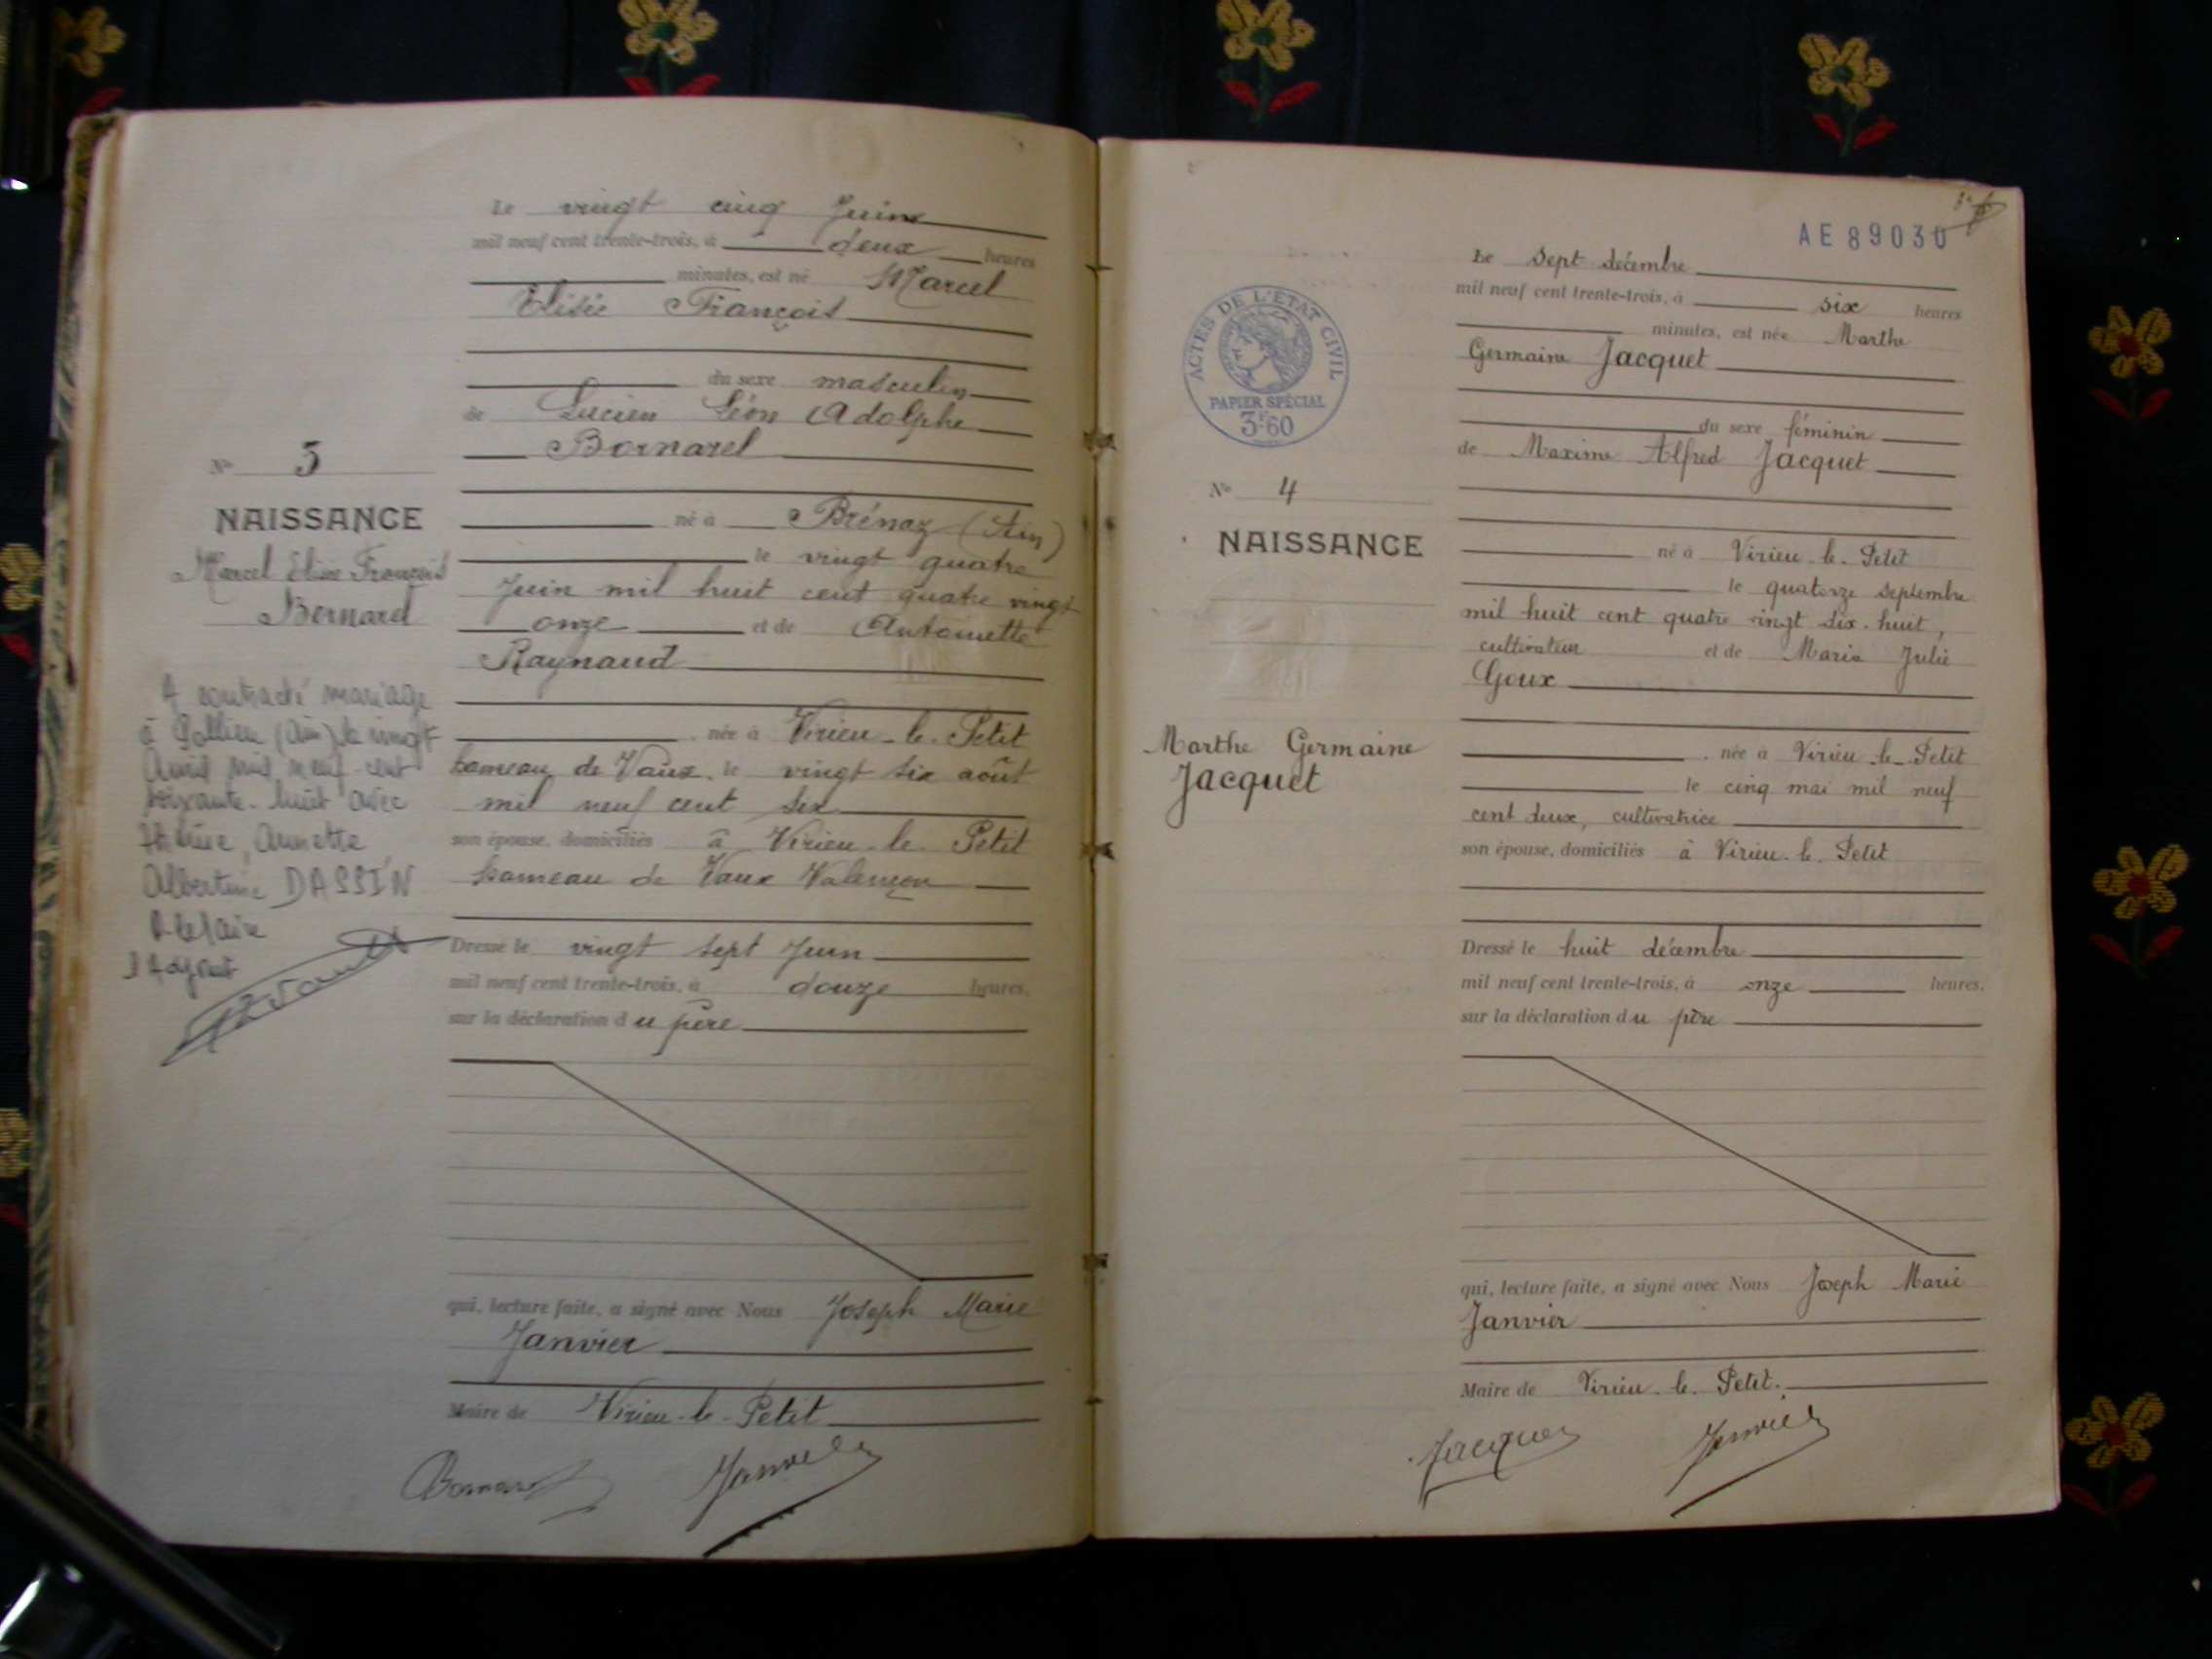 Le vingt cinq Juin
mil neuf cent trente-trois, à deux heures
minutes, est né Marcel
Elisée François
du sexe masculin
de Lucien Léon Adolphe
Bornarel
N° 3
NAISSANCE
Marcel Elisée François
Bornarel
né à Brénaz (Ain)
le vingt quatre
Juin mil huit cent quatre vingt
onze et de Antoinette
Raynaud
née à Virieu-le-Petit
hameau de Vaux, le vingt six août
mil neuf cent six
son épouse, domiciliés à Virieu-le-Petit
hameau de Vaux
A contracté mariage
à Pollieu (Ain) le vingt
Avril mil neuf cent
soixante-huit avec
Annette
Albertine DASSIN
Dressé le vingt sept Juin
mil neuf cent trente-trois, à douze heures,
sur la déclaration du père
qui, lecture faite, a signé avec Nous Joseph Marie
Janvier
Maire de Virieu-le-Petit
Bornarel Janvier
AE 89030
Le sept décembre
mil neuf cent trente-trois, à six heures
minutes, est née Marthe
Germaine Jacquet
du sexe féminin
de Maxime Alfred Jacquet
ACTES DE L'ÉTAT CIVIL
PAPIER SPÉCIAL
3F60
N° 4
NAISSANCE
Marthe Germaine
Jacquet
né à Virieu-le-Petit
le quatorze septembre
mil huit cent quatre vingt dix-huit,
cultivateur et de Maria Julie
Goux
née à Virieu-le-Petit
le cinq mai mil neuf
cent deux, cultivatrice
son épouse, domiciliés à Virieu-le-Petit
Dressé le huit décembre
mil neuf cent trente-trois, à onze heures,
sur la déclaration du père
qui, lecture faite, a signé avec Nous Joseph Marie
Janvier
Maire de Virieu-le-Petit.
Jacquet Janvier